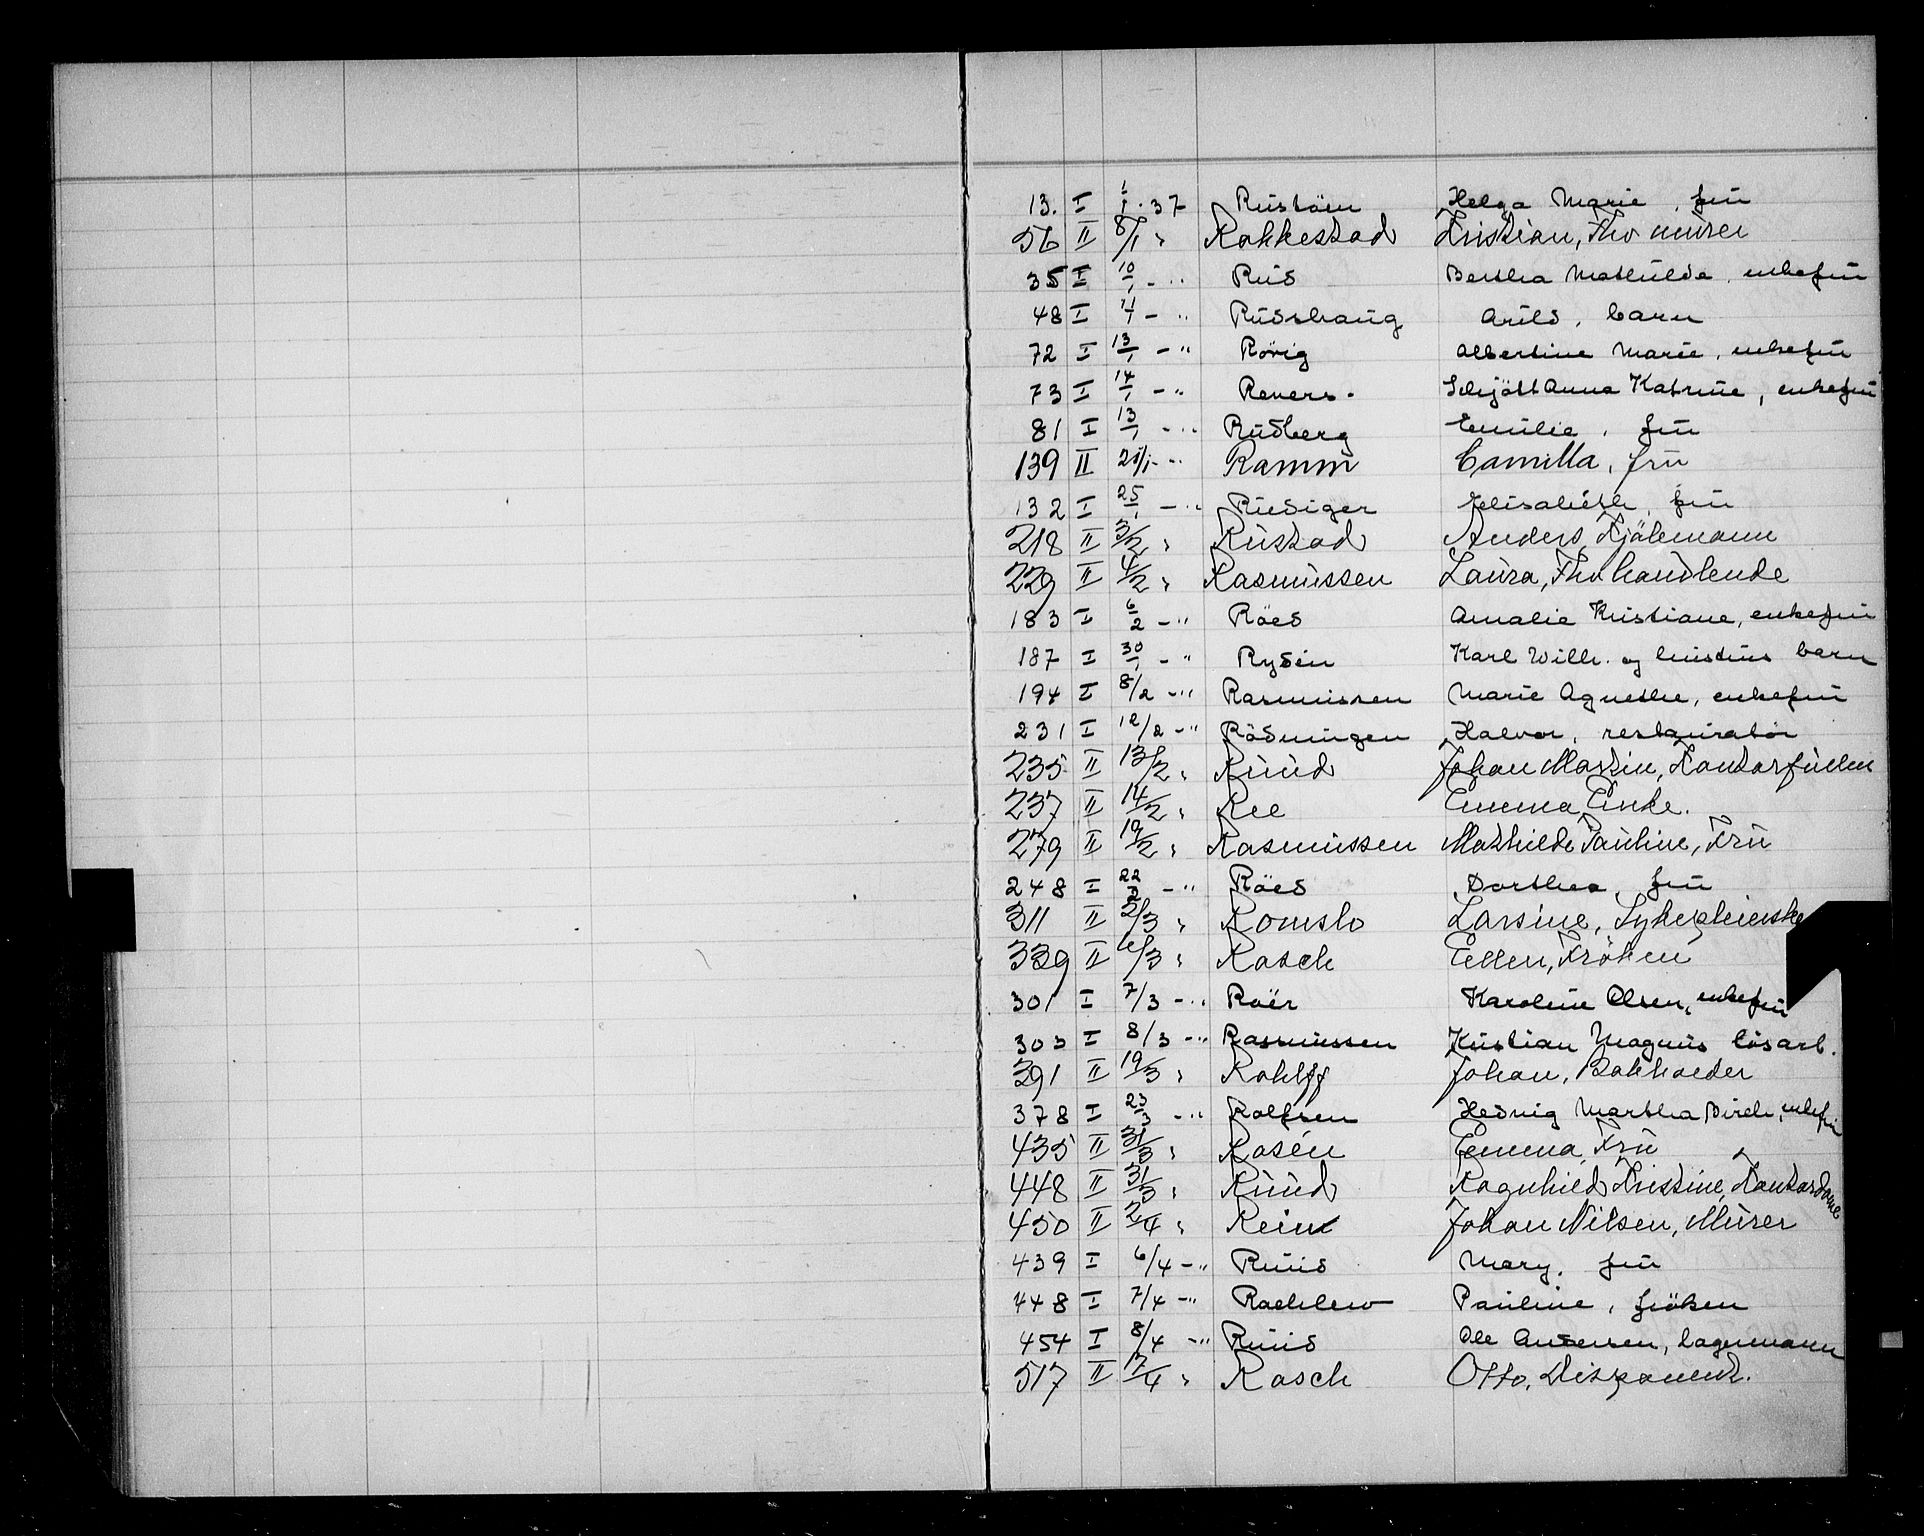 13. I 1/1 · 37 Rustöen Helga Marie, fru
56 II 8/1 " Rakkestad Kristian, Fhv murer
35 I 10/1 - " Rud Bertha Mathilde, enkefru
48 I 11/1 - " Rudshaug Arild, barn
72 I 13/1 - " Rövig Albertine Marie, enkefru
73 I 14/1 - " Revers. Schjött Anna Katrine, enkefru
81 I 13/1 - " Rudberg Emilie, fru
139 II 21/1 - " Ramm Camilla, fru
132 I 25/1 - " Rüdiger Elisabeth, fru
218 II 3/2 " Rustad Anders, Kjälemann
229 II 4/2 " Rasmussen Laura, Fhv handlende
183 I 6/2 - " Röed Amalie Kristiane, enkefru
187 I 30/1 - " Rydén Karl Wilh. og barn
194 I 8/2 - " Rasmussen Marie Agnethe, enkefru
231 I 12/2 - " Rödningen Halvor, restauratör
235 II 13/2 " Ruud Johan Martin, Kontorfullm
237 II 14/2 " Ree Emma, Enke.
279 II 19/2 " Rasmussen Mathilde Pauline, Fru
248 I 22/2 - " Röed Dorthea, fru
311 II 2/3 " Romslo Larsine, Sykepleierske
339 II 6/3 " Rasch Ellen, Fröken
301 I 7/3 - " Roër Karoline Olsen, enkefru
303 I 8/3 - " Rasmussen Kristian Magnus lösarb.
391 II 19/3 " Rohlff Johan, Bokholder
378 I 23/3 - " Rolfsen Hedvig Martha Birch, enkefru
435 II 31/3 " Rosén Emma, Fru
448 II 31/3 " Ruud Ragnhild Kristine, Kontordame
450 II 2/4 " Rein Johan Nilsen, Murer
439 I 6/4 - " Ruud Mary, fru
448 I 7/4 - " Rachlew Pauline, fröken
454 I 8/4 - " Ruud Ole Andersen, lagermann
517 II 17/4 " Rasch Otto, Disponent.